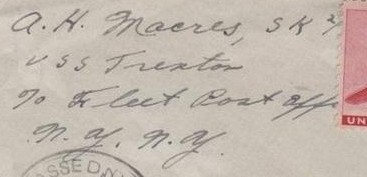 A. H. Macres, SK 2/
USS Trenton
℅ Fleet Post Off
N.Y. N.Y.
UN
ASSED